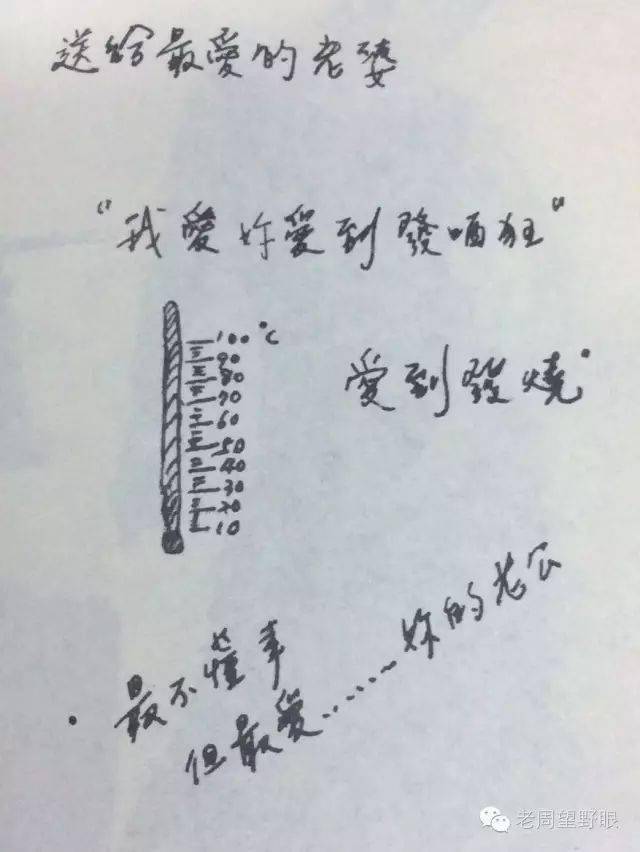 送給最愛的老婆
“我愛妳愛到發哂狂”
100 °C
90
80
70
60
50
40
30
20
10
愛到發燒"
最不懂事
但最愛......妳的老公
老周望野眼